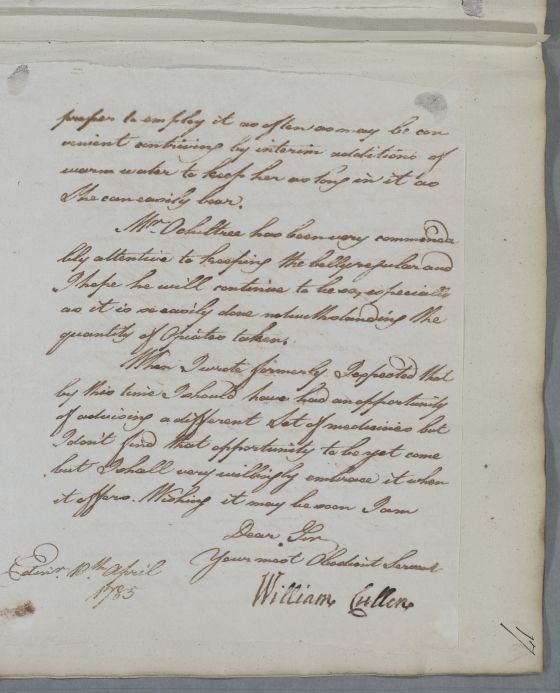 proper to employ it as often as may be con
venient contriving by interim additions of
warm water to keep her as long in it as
She can easily bear.
Mr. Ochiltree has been very commenda
bly attentive to keeping the belly regular and
I hope he will continue to be so, especially
as it is so easily done notwithstanding the
quantity of Opiates taken.
When I wrote formerly I expected that
by this time I should have had an opportunity
of advising a different Set of medicines but
I don't find that opportunity to be yet come
but I shall very willingly embrace it when
it offers. Wishing it may be soon I am
Dear Sir
Your most Obedient Servant
Edinr. 10th. April
1785
William Cullen
17